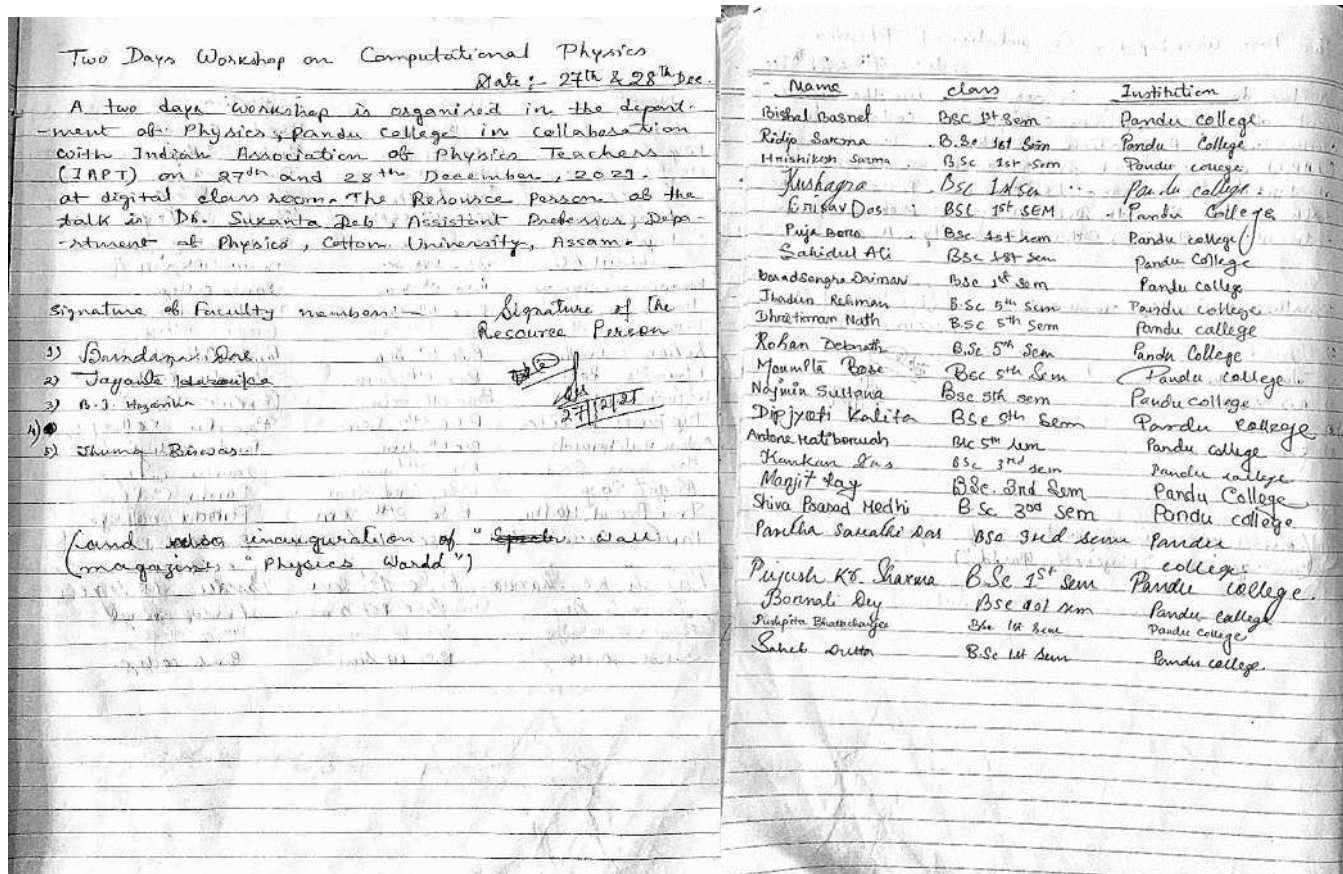 Two Days Workshop on Computational Physics
Date :- 27th & 28th Dec.
A two days workshop is organised in the depart-
-ment of Physics, Pandu College in collaboration
with Indian Association of Physics Teachers
(IAPT) on 27th and 28th December, 2021.
at digital class room. The Resource Person of the
talk is Dr. Sukanta Deb, Assistant Professor, Depa-
-rtment of Physics, Cotton University, Assam.
Signature of Faculty members :-
Signature of the
Resource Person
1) Bandana Das
2) Jayanta
3) B.J. Hazarika
27/12/21
4)
5) Jhuma Biswas
(and inauguration of " wall
magazine, "Physics Wardd")
Name class Institution
Bishal Basnet BSC 1st Sem Pandu college
Ridip Sarma B.Sc 1st Sem Pandu College
Hrishikesh Sarma B.Sc 1st Sem Pandu college
Kushagra Bsc 1st Sem Pandu college
Das BSC 1st SEM Pandu College
Puja Boro Bsc 1st sem Pandu college
Sahidul Ali BSc 1st Sem Pandu College
Daimari B.Sc 1st Sem Pandu college
Rehman B.Sc 5th Sem Pandu college
Nath B.Sc 5th Sem Pandu college
Rohan Debnath B.Sc 5th Sem Pandu College
Moumita Bose Bsc 5th Sem Pandu college.
Najmin Sultana Bsc 5th sem Pandu college
Dipjyoti Kalita BSc 5th Sem Pandu college
Hatiboruah BSc 5th Sem Pandu college
Kankan Das BSc 3rd sem Pandu college
Manjit Ray B.Sc. 3rd Sem Pandu College
Shiva Prasad Medhi B.Sc 3rd Sem Pandu college
Partha Sarathi Das BSc 3rd sem Pandu
college
Pujush Kr. Sharma B.Sc 1st Sem Pandu college.
Bornali Dey Bsc 1st sem Pandu college
Bhattacharjee BSc 1st Sem Pandu college
Saheb Dutta B.Sc 1st Sem Pandu college.